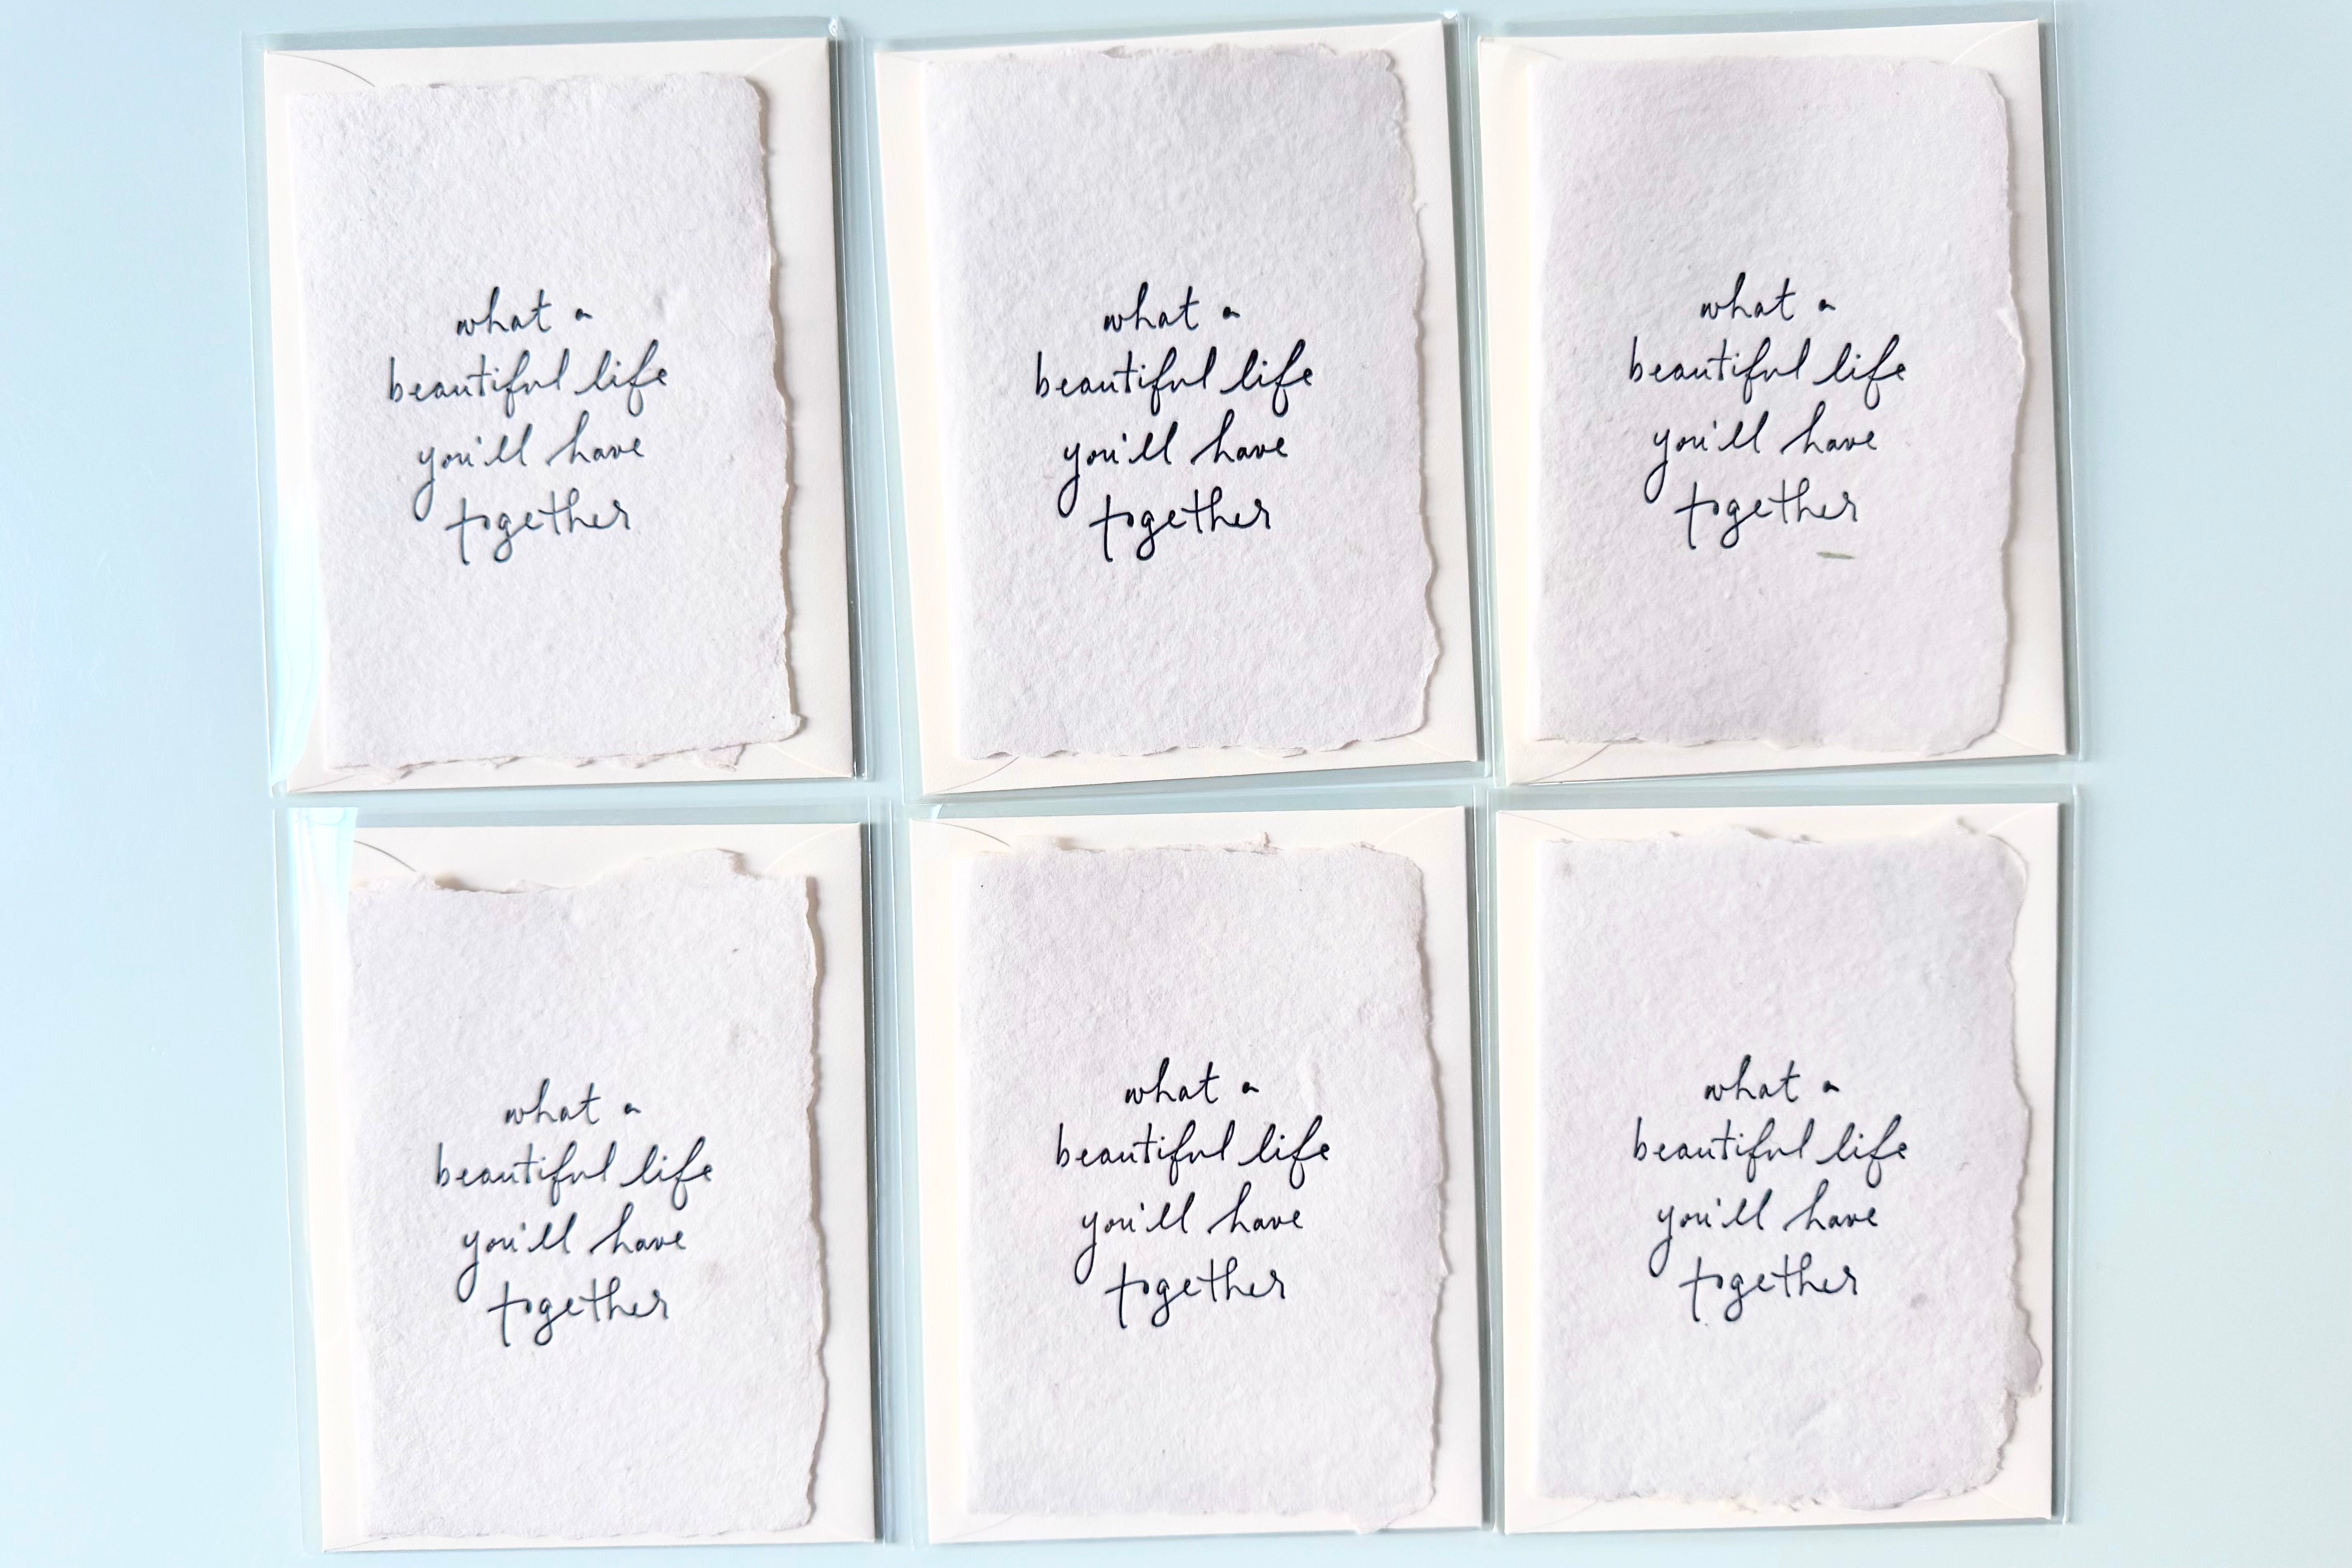 what a
beautiful life
you'll have
together
what a
beautiful life
you'll have
together
what a
beautiful life
you'll have
together
what a
beautiful life
you'll have
together
what a
beautiful life
you'll have
together
what a
beautiful life
you'll have
together